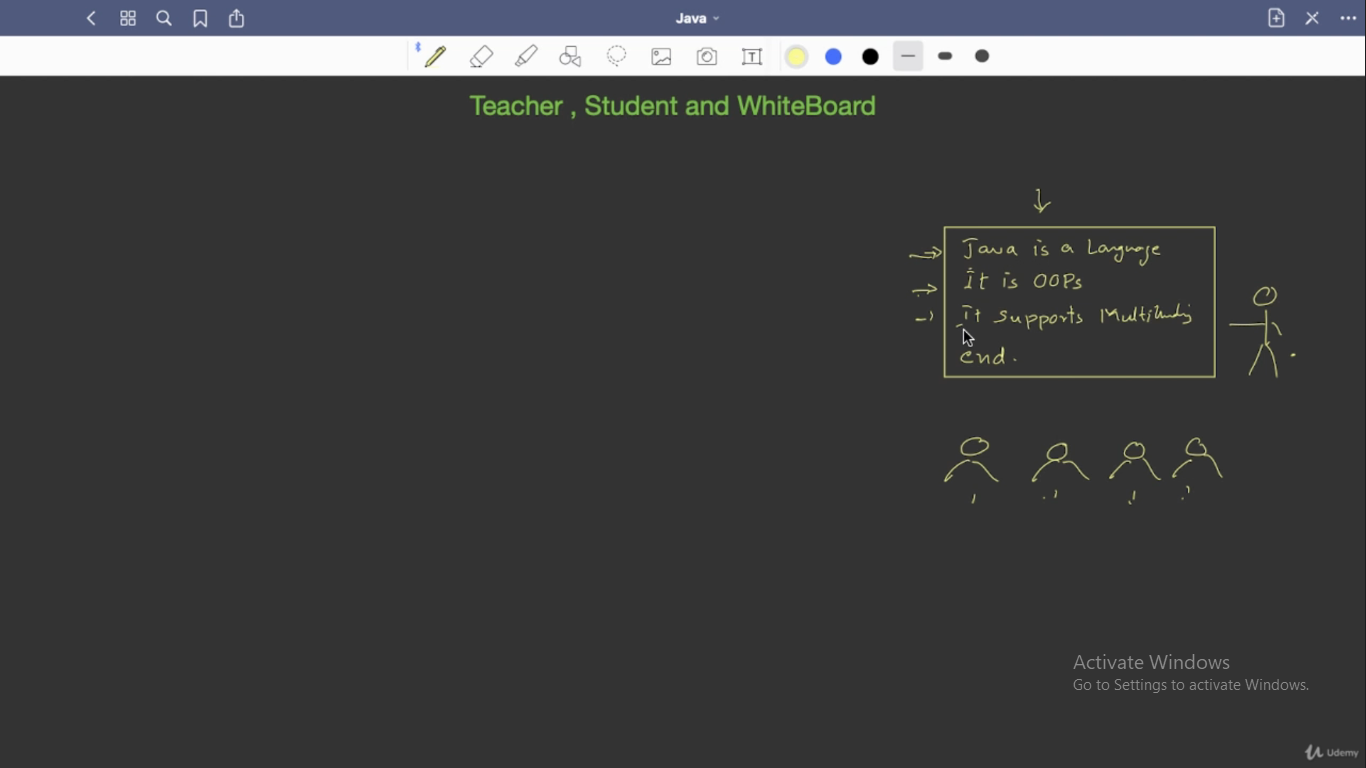 Java
T
Teacher , Student and WhiteBoard
Java is a Language
It is OOPs
It supports
end.
Activate Windows
Go to Settings to activate Windows.
Udemy